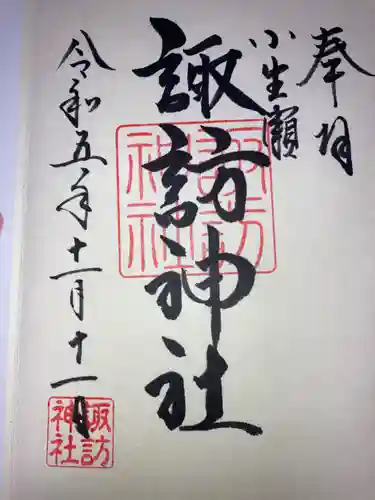 奉拝
小生瀬
諏訪神社
令和五年十一月十一日
諏訪
神社
諏訪
神社